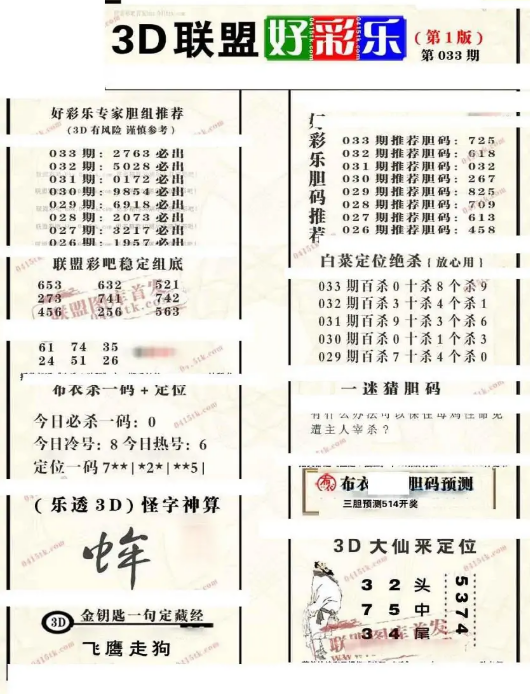 3D联盟好彩乐(第1版)
第033期
好彩乐专家胆组推荐
(3D有风险 谨慎参考)
033期：2763必出
032期：5028必出
031期：0172必出
030期：9854必出
029期：6918必出
028期：2073必出
027期：3217必出
026期：1957必出
联盟彩吧稳定组底
653 632 521
273 741 742
456 256 563
61 74 35
24 51 26
布衣杀一码+定位
今日必杀一码：0
今日冷号：8今日热号：6
定位一码7**|*2*|**5|
(乐透3D)怪字神算
3D 金钥匙一句定藏经
飞鹰走狗
彩乐胆码推荐
033期推荐胆码：725
032期推荐胆码：618
031期推荐胆码：032
030期推荐胆码：267
029期推荐胆码：825
028期推荐胆码：709
027期推荐胆码：613
026期推荐胆码：458
白菜定位绝杀{放心用}
033期百杀0十杀8个杀9
032期百杀3十杀4个杀1
031期百杀9十杀3个杀6
030期百杀0十杀1个杀3
029期百杀7十杀4个杀0
一迷猜胆码
有什么办法可以保住母鸡性命免
遭主人宰杀？
布衣 胆码预测
三胆预测514开奖
3D大仙来定位
3 2 头
7 5 中
3 4 尾
5374